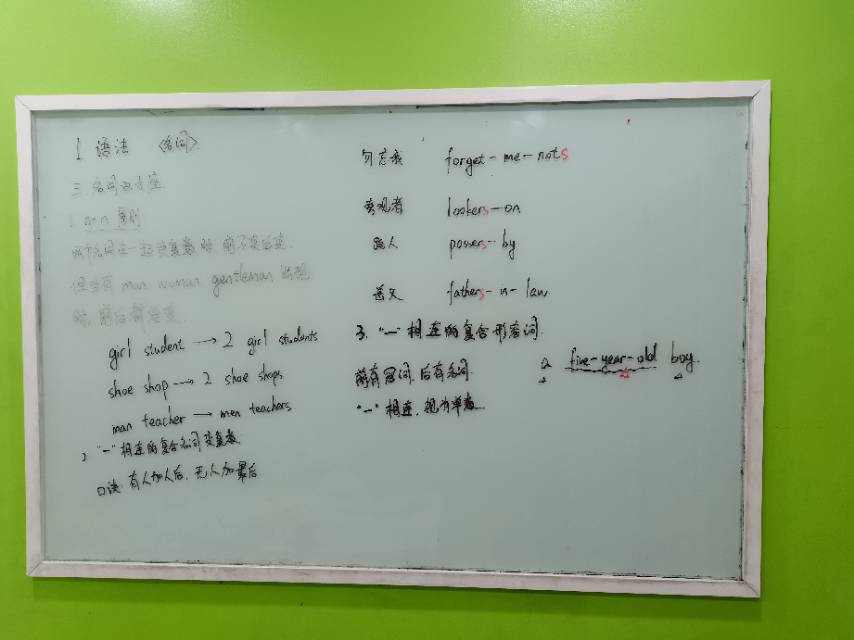 1 语法 <名词>
三.名词
1. n+n 原则
两个名词在一起变复数时,前不变后变.
但当有 man woman gentleman 出现
时,前后都要变
girl student → 2 girl students
shoe shop → 2 shoe shops
man teacher → men teachers
2 "—"相连的复合名词变复数
口诀:有人加人后,无人加最后
勿忘我 forget-me-nots
旁观者 lookers-on
路人 passers-by
岳父 fathers-in-law
3. "—"相连的复合形容词.
前有冠词,后有名词.
"—"相连,视为单数
a five-year-old boy